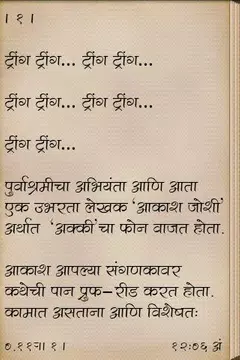 । १ ।
ट्रींग ट्रींग... ट्रींग ट्रींग...
ट्रींग ट्रींग... ट्रींग ट्रींग...
ट्रींग ट्रींग...
पुर्वाश्रमीचा अभियंता आणि आता
एक उभरता लेखक ‘आकाश जोशी’
अर्थात ‘अक्की’चा फोन वाजत होता.
आकाश आपल्या संगणकावर
कथेची पान प्रुफ-रीड करत होता.
कामात असताना आणि विशेषतः